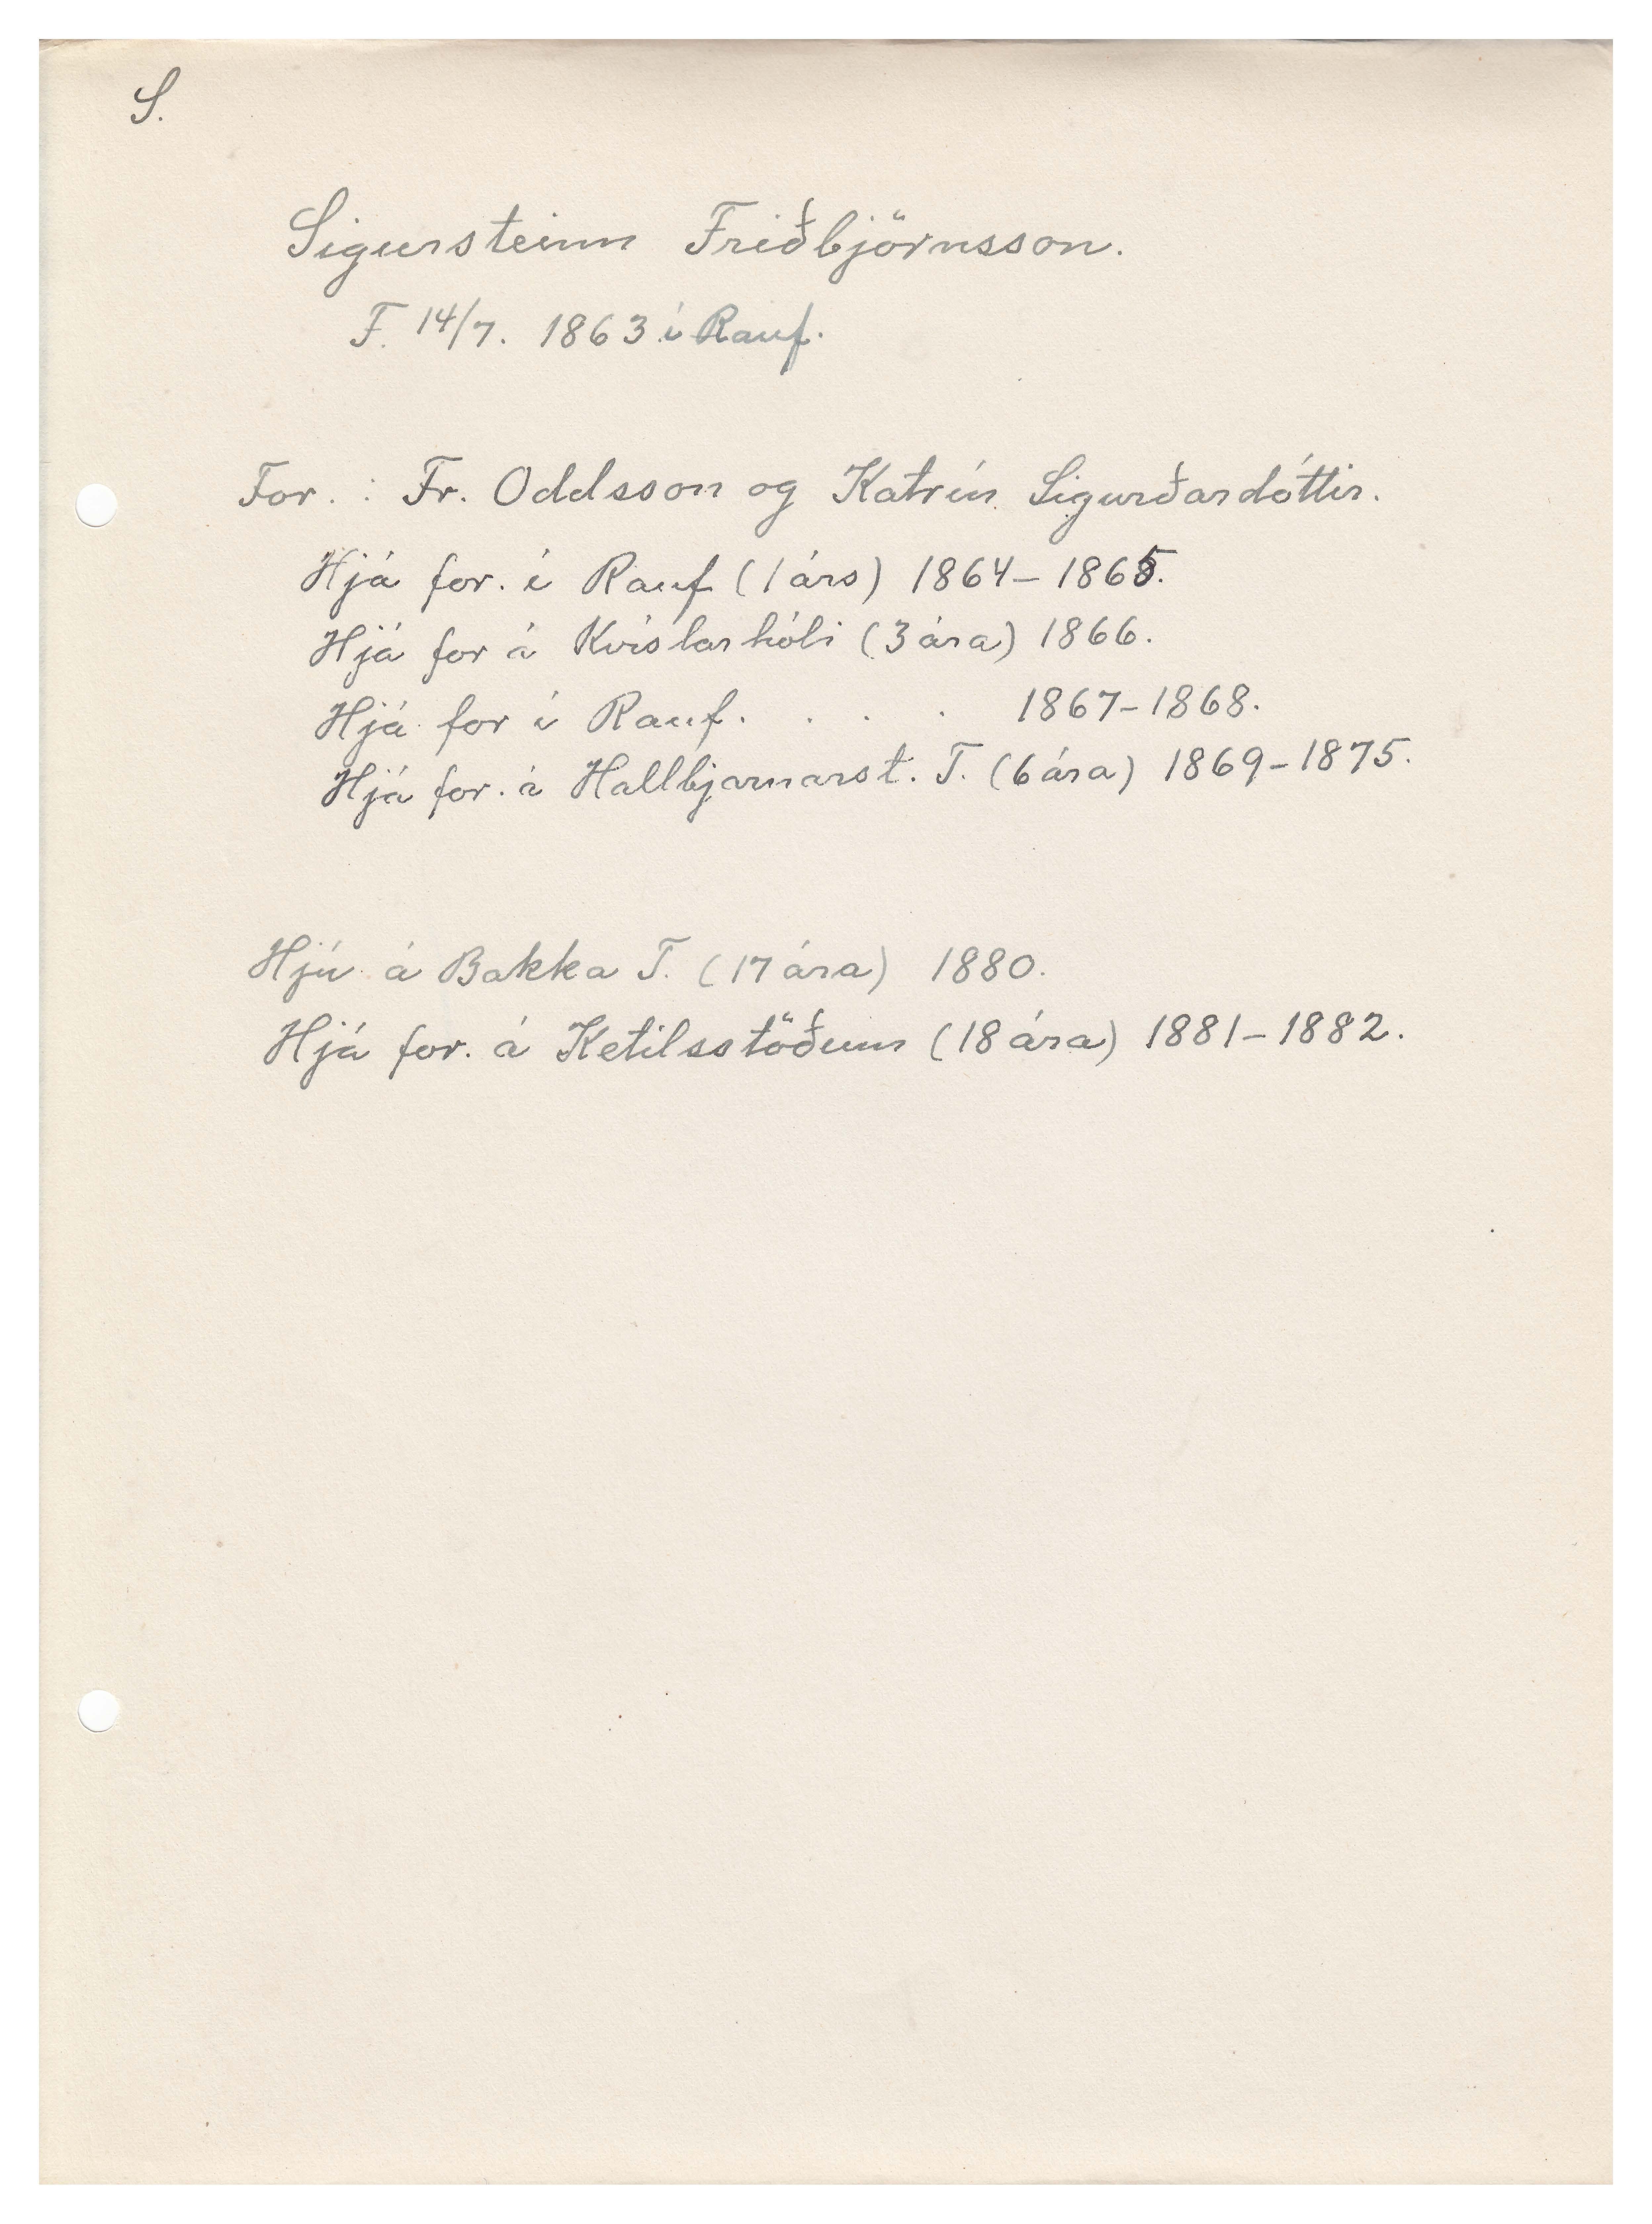 S.
Sigursteinn Friðbjörnsson.
F. 14/7. 1863 í Rauf.
For. : Fr. Oddsson og Katrín Sigurðardóttir.
Hjá for. í Rauf (1 árs) 1864-1865.
Hjá for á Kvíslarhóli (3 ára) 1866.
Hjá for í Rauf. . . . 1867-1868.
Hjá for. á Hallbjarnarst. T. (6 ára) 1869-1875.
Hjú á Bakka T. (17 ára) 1880.
Hjá for. á Ketilsstöðum (18 ára) 1881-1882.